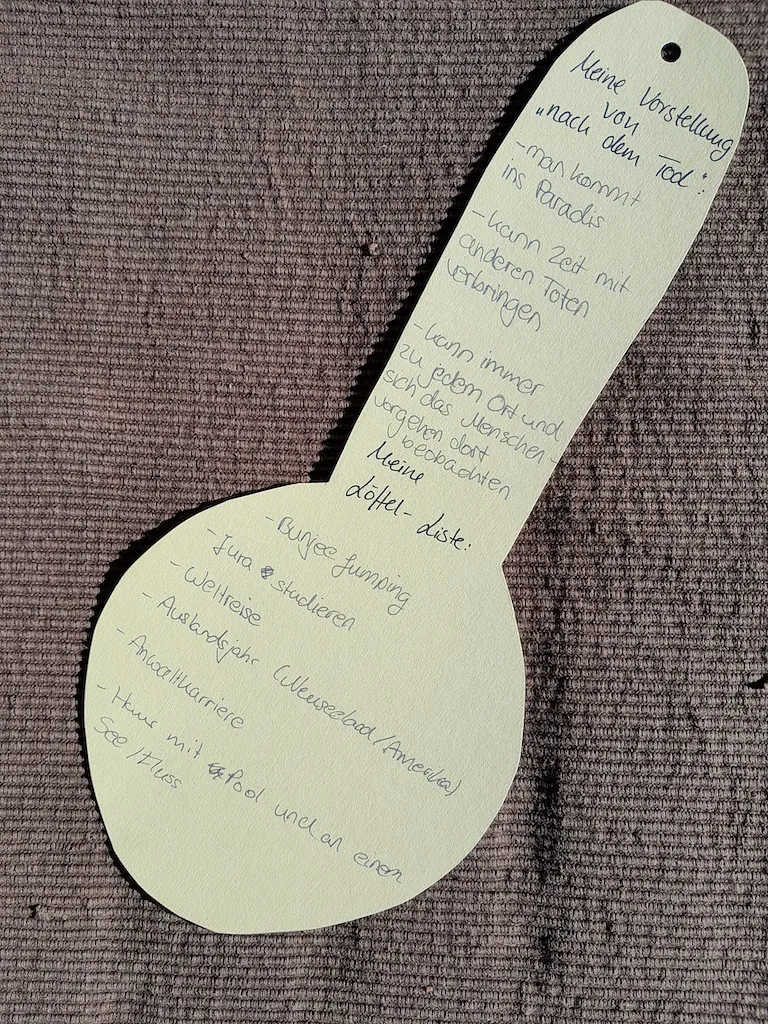 Meine Vorstellung
von
„nach dem Tod“:
- man kommt
ins Paradis
- kann Zeit mit
anderen Toten
verbringen
- kann immer
zu jedem Ort und
sich das Menschen-
vorgehen dort
beobachten
Meine
Löffel-Liste:
- Bunjee Jumping
- Jura studieren
- Weltreise
- Auslandsjahr (Neuseeland/Amerika)
- Anwaltkarriere
- Haus mit Pool und an einem
See/Fluss